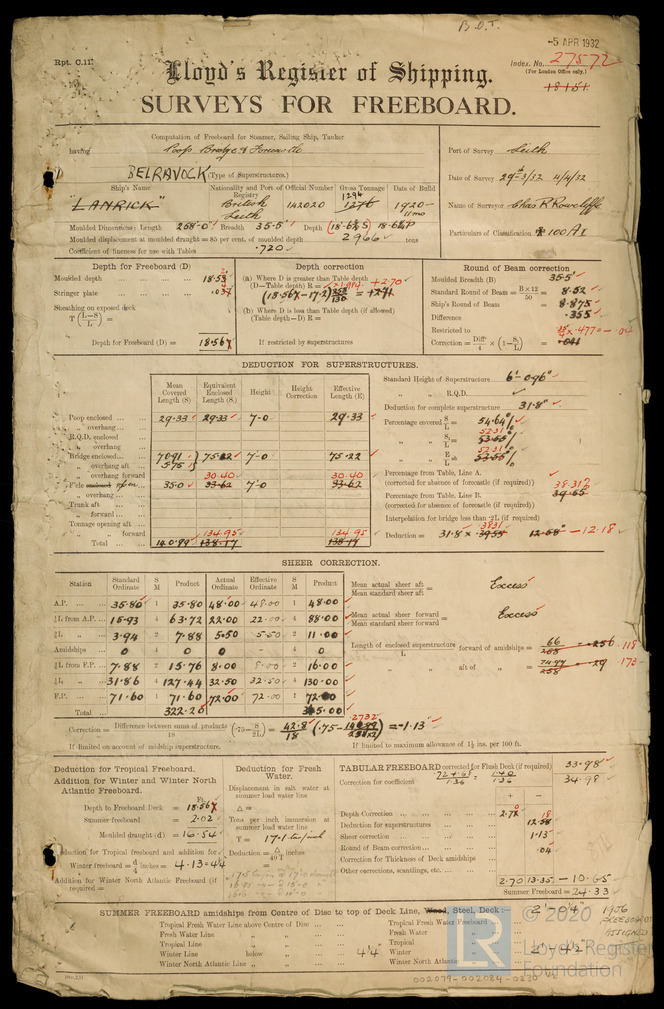 B.D.T.
-5 APR 1932
Rpt. C.11
Index. No. 27572
(For London Office only.)
18151
Lloyd's Register of Shipping.
SURVEYS FOR FREEBOARD.
Computation of Freeboard for Steamer, Sailing Ship, Tanker
having Poop Bridge & Forecastle
BELRAVOCK (Type of Superstructures.)
Port of Survey Leith
Date of Survey 29/3/32 11/4/32
Name of Surveyor Chas R Rowcliffe
Particulars of Classification ✠ 100 A1
Ship's Name Nationality and Port of Registry Official Number Gross Tonnage Date of Build
"LANRICK" British Leith 142020 1296 1276 1920- 11mo
Moulded Dimensions: Length 258'·0" Breadth 35·5' Depth
Moulded displacement at moulded draught = 85 per cent. of moulded depth 2966 tons
Coefficient of fineness for use with Tables ·720
Depth for Freeboard (D)
Moulded depth 18·53
Stringer plate
Sheathing on exposed deck
T (L-S / L) =
Depth for Freeboard (D) = 18·567
Depth correction
(a) Where D is greater than Table depth
(D—Table depth) R = +2·70
(18·567-17·2)
(b) Where D is less than Table depth (if allowed)
(Table depth—D) R =
If restricted by superstructures
Round of Beam correction
Moulded Breadth (B) 35·5'
Standard Round of Beam = B×12 / 50 = 8·52
Ship's Round of Beam = 8·875
Difference ·355
Restricted to
Correction = Diff / 4 × (1 - S₁ / L) = ·041
DEDUCTION FOR SUPERSTRUCTURES.
Mean Covered Length (S) Equivalent Enclosed Length (S₁) Height Height Correction Effective Length (E)
Poop enclosed 29·33 29·33 7·0 29·33
„ overhang
R.Q.D. enclosed
„ overhang
Bridge enclosed 70·91 75·22 7·0 75·22
„ overhang aft 5·75
„ overhang forward 30·40 30·40
F'cle 35·0 33·62 7·0 33·62
„ overhang
Trunk aft
„ forward
Tonnage opening aft
„ „ forward 134·95 134·95
Total 140·99 138·17 138·17
Standard Height of Superstructure 6'·096"
„ „ R.Q.D.
Deduction for complete superstructure 31·8"
Percentage covered S / L = 54·64%
„ „ S₁ / L = 52·31 53·55%
„ „ E / L = 52·31 53·55%
Percentage from Table, Line A.
(corrected for absence of forecastle (if required)) 38·31%
Percentage from Table, Line B. 39·55
(corrected for absence of forecastle (if required))
Interpolation for bridge less than ·2L (if required)
Deduction = 31·8 × 3831 3955 12·58" - 12·18
SHEER CORRECTION.
Station Standard Ordinate S M Product Actual Ordinate Effective Ordinate S M Product
A.P. 35·80 1 35·80 48·00 48·00 1 48·00
⅙L from A.P. 15·93 4 63·72 22·00 22·00 4 88·00
⅓L „ 3·94 2 7·88 5·50 5·50 2 11·00
Amidships 0 4 0 0 - 4 0
⅓L from F.P. 7·88 2 15·76 8·00 8·00 2 16·00
⅙L „ 31·86 4 127·44 32·50 32·50 4 130·00
F.P. 71·60 1 71·60 72·00 72·00 1 72·00
Total 322·20 365·00
Mean actual sheer aft / Mean standard sheer aft = Excess
Mean actual sheer forward / Mean standard sheer forward = Excess
Length of enclosed superstructure / L forward of amidships = 66 / 258 = ·256 ·118
„ „ aft of „ = 74·97 / 258 = ·29 ·173
Correction = Difference between sums of products / 18 (·75 - S / 2L) = 42·8 / 18 (·75- ·2732) = -1·13
If limited on account of midship superstructure.
If limited to maximum allowance of 1½ ins. per 100 ft.
Deduction for Tropical Freeboard.
Addition for Winter and Winter North Atlantic Freeboard.
Depth to Freeboard Deck = 18·567
Summer freeboard = 2·02
Moulded draught (d) = 16·54
Deduction for Tropical freeboard and addition for
Winter freeboard = d / 4 inches = 4·13=4¼
Addition for Winter North Atlantic Freeboard (if required) =
Deduction for Fresh Water.
Displacement in salt water at summer load water line
Δ =
Tons per inch immersion at summer load water line
T = 17·1 tons/inch
Deduction = Δ / 40T inches
TABULAR FREEBOARD corrected for Flush Deck (if required) 33·98
Correction for coefficient 34·98
+ -
Depth Correction 2·70
Deduction for superstructures 12·58
Sheer correction 1·13
Round of Beam correction ·04
Correction for Thickness of Deck amidships
Other corrections, scantlings, etc.
2·70 13·35 - 10·65
Summer Freeboard = 24·33
SUMMER FREEBOARD amidships from Centre of Disc to top of Deck Line, Wood, Steel, Deck: 2'-0¼"
Tropical Fresh Water Line above Centre of Disc
Fresh Water Line „ „
Tropical Line „ „
Winter Line below „ 4¼
Winter North Atlantic Line „ „
Tropical Fresh Water Freeboard
Fresh Water „
Tropical „
Winter „ 2'-4½"
Winter North Atlantic „
1906 FREEBOARD ASSIGNED
002079-002084-0230
© 2020
LR
Lloyd's Register
Foundation